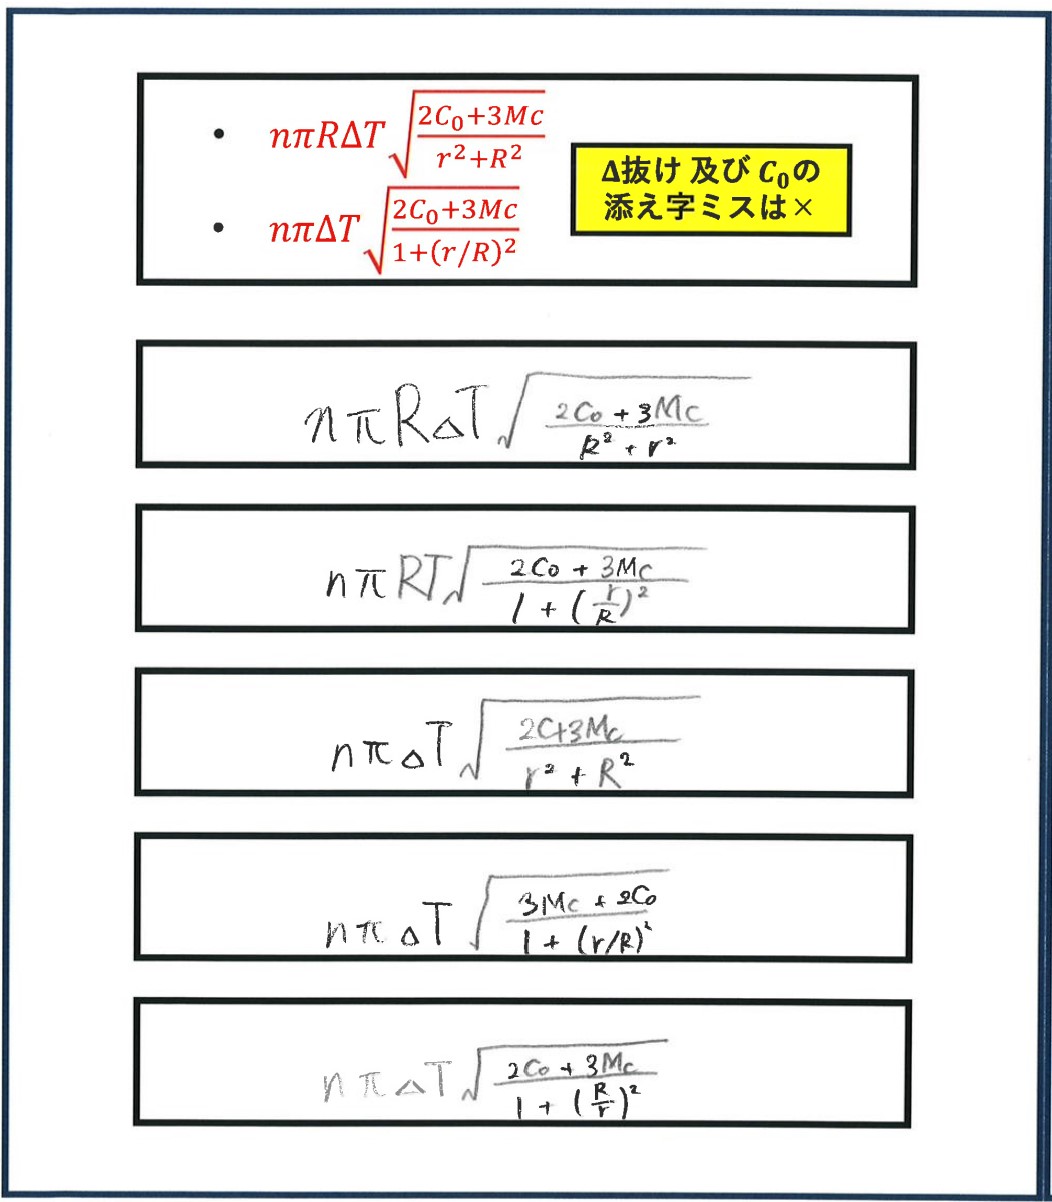 • nπRΔT√((2C₀+3Mc)/(r²+R²))
• nπΔT√((2C₀+3Mc)/(1+(r/R)²))
Δ抜け 及び C₀の
添え字ミスは×
nπRΔT√((2C₀+3Mc)/(R²+r²))
nπRT√((2C₀+3Mc)/(1+(r/R)²))
nπΔT√((2C+3Mc)/(r²+R²))
nπΔT√((3Mc+2C₀)/(1+(r/R)²))
nπΔT√((2C₀+3Mc)/(1+(R/r)²))